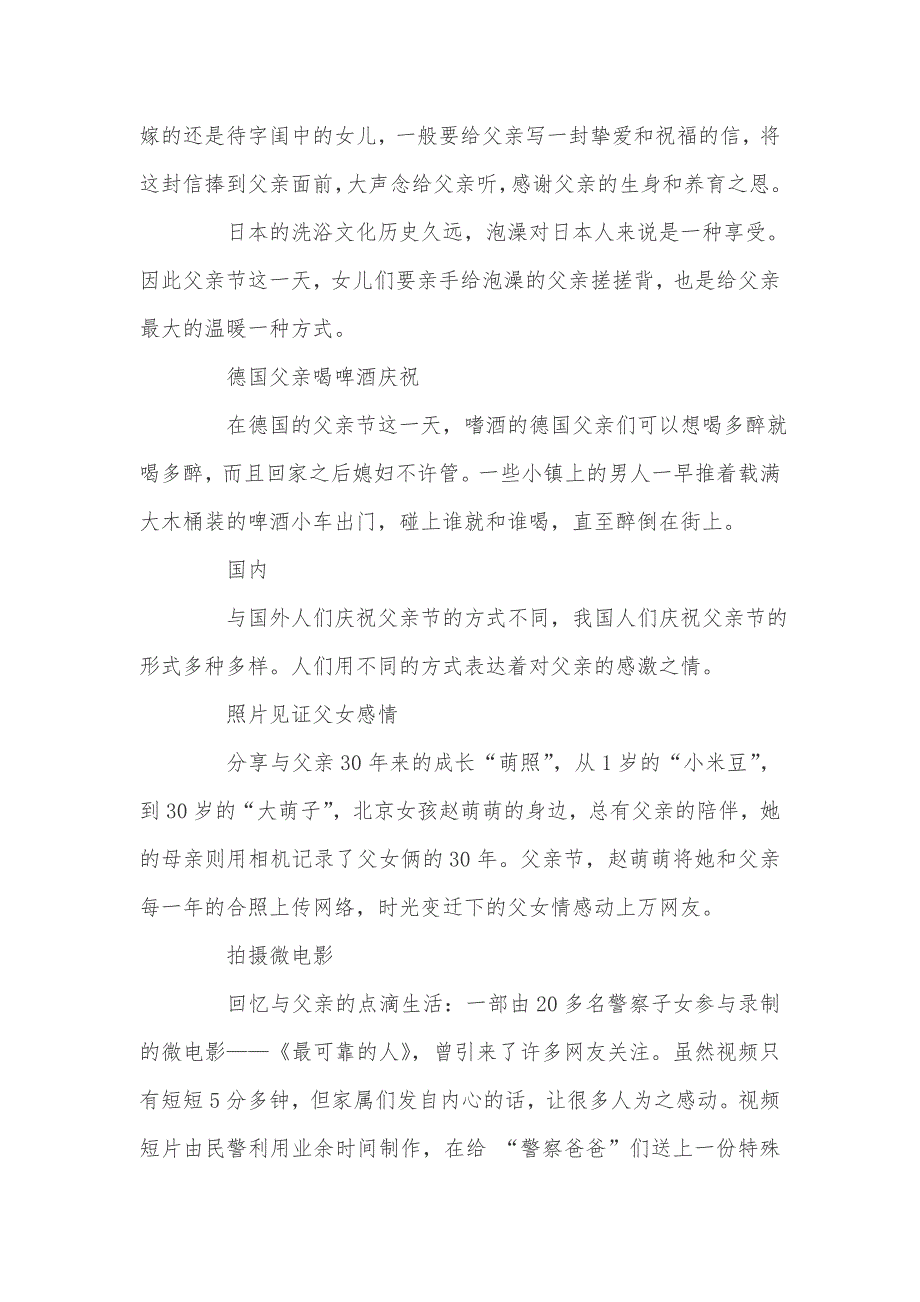 嫁的还是待字闺中的女儿，一般要给父亲写一封挚爱和祝福的信，将
这封信捧到父亲面前，大声念给父亲听，感谢父亲的生身和养育之恩。
日本的洗浴文化历史久远，泡澡对日本人来说是一种享受。
因此父亲节这一天，女儿们要亲手给泡澡的父亲搓搓背，也是给父亲
最大的温暖一种方式。
德国父亲喝啤酒庆祝
在德国的父亲节这一天，嗜酒的德国父亲们可以想喝多醉就
喝多醉，而且回家之后媳妇不许管。一些小镇上的男人一早推着载满
大木桶装的啤酒小车出门，碰上谁就和谁喝，直至醉倒在街上。
国内
与国外人们庆祝父亲节的方式不同，我国人们庆祝父亲节的
形式多种多样。人们用不同的方式表达着对父亲的感激之情。
照片见证父女感情
分享与父亲30年来的成长“萌照”，从1岁的“小米豆”，
到30岁的“大萌子”，北京女孩赵萌萌的身边，总有父亲的陪伴，她
的母亲则用相机记录了父女俩的30年。父亲节，赵萌萌将她和父亲
每一年的合照上传网络，时光变迁下的父女情感动上万网友。
拍摄微电影
回忆与父亲的点滴生活：一部由20多名警察子女参与录制
的微电影——《最可靠的人》，曾引来了许多网友关注。虽然视频只
有短短5分多钟，但家属们发自内心的话，让很多人为之感动。视频
短片由民警利用业余时间制作，在给 “警察爸爸”们送上一份特殊